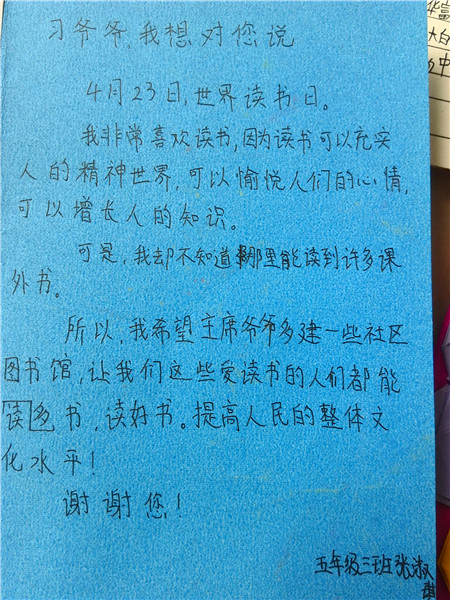 习爷爷,我想对您说
4月23日,世界读书日。
我非常喜欢读书,因为读书可以充实
人的精神世界,可以愉悦人们的心情,
可以增长人的知识。
可是,我却不知道哪里能读到许多课
外书。
所以,我希望主席爷爷多建一些社区
图书馆,让我们这些爱读书的人们都能
读多书,读好书。提高人民的整体文
化水平!
谢谢您!
五年级三班张淑